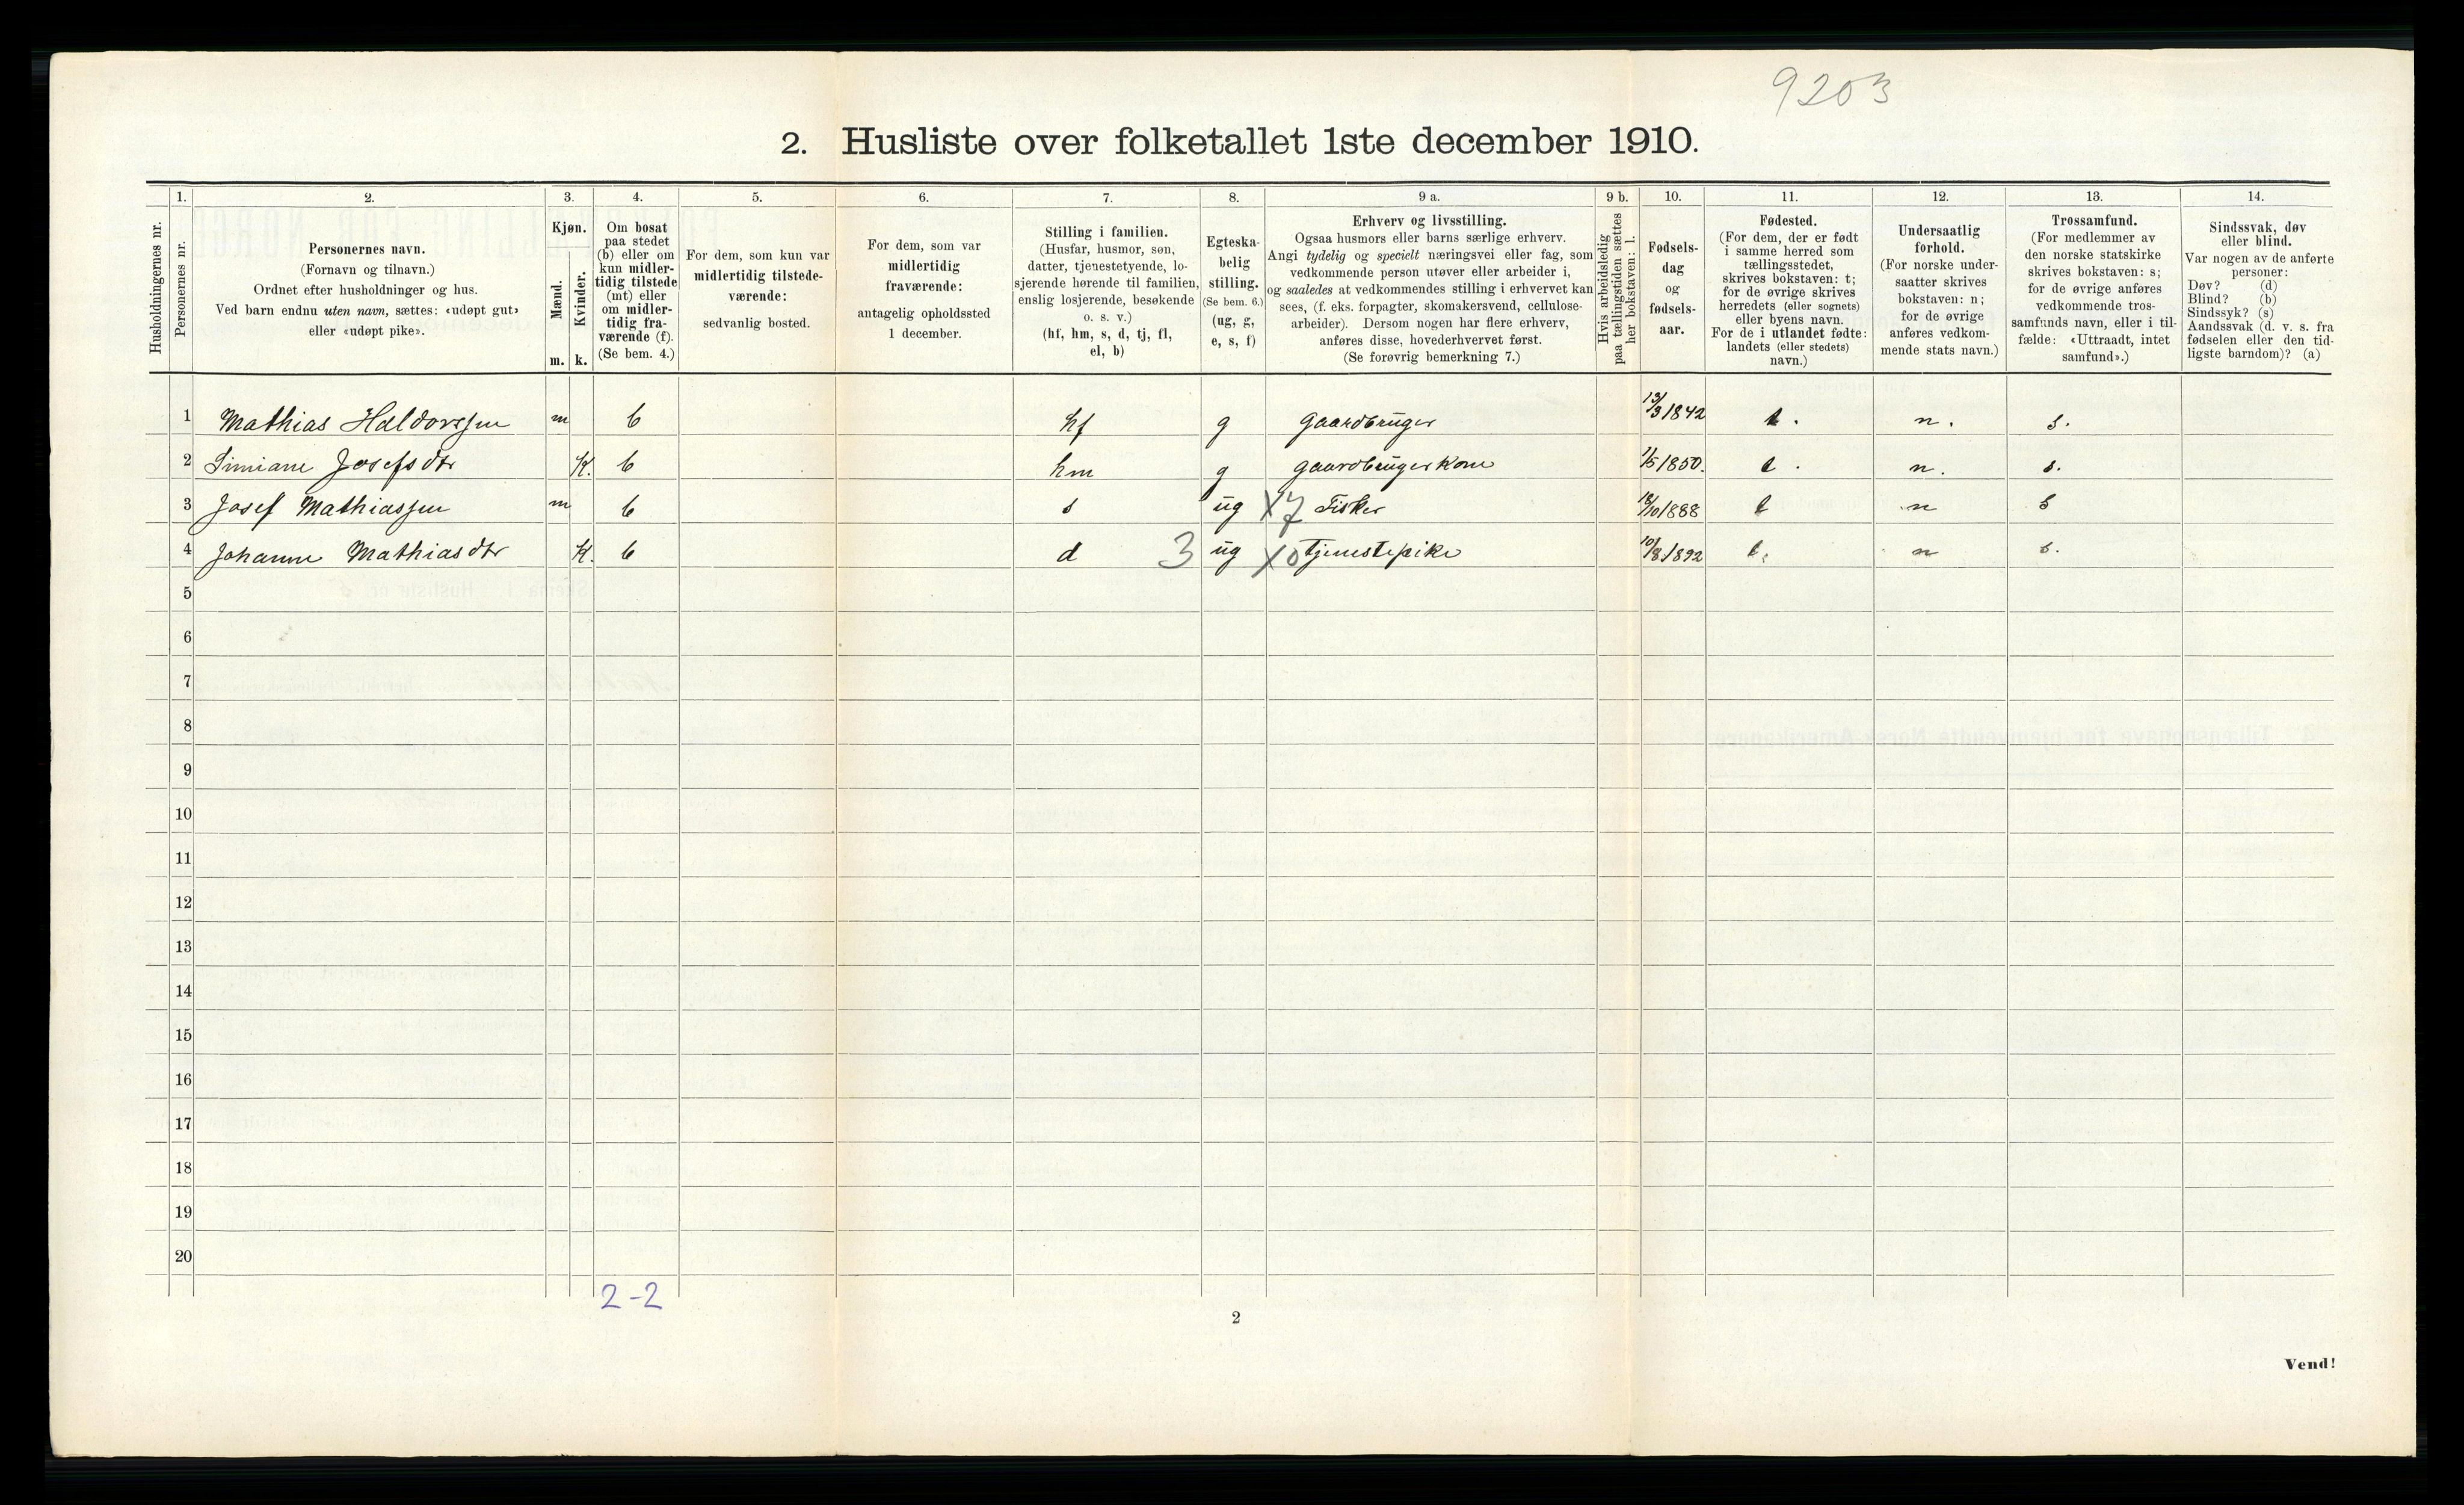 9203
2. Husliste over folketallet 1ste december 1910.
1. 2. 3. 4. 5. 6. 7. 8. 9 a. 9 b. 10. 11. 12. 13. 14.
Husholdningernes nr.
Personernes nr.
Personernes navn.
(Fornavn og tilnavn.)
Ordnet efter husholdninger og hus.
Ved barn endnu uten navn, sættes: «udøpt gut»
eller «udøpt pike».
Kjøn.
Mænd.
Kvinder.
m. k.
Om bosat
paa stedet
(b) eller om
kun midler-
tidig tilstede
(mt) eller
om midler-
tidig fra-
værende (f).
(Se bem. 4.)
For dem, som kun var
midlertidig tilstede-
værende:
sedvanlig bosted.
For dem, som var
midlertidig
fraværende:
antagelig opholdssted
1 december.
Stilling i familien.
(Husfar, husmor, søn,
datter, tjenestetyende, lo-
sjerende hørende til familien,
enslig losjerende, besøkende
o. s. v.)
(hf, hm, s, d, tj, fl,
el, b)
Egteska-
belig
stilling.
(Se bem. 6.)
(ug, g,
e, s, f)
Erhverv og livsstilling.
Ogsaa husmors eller barns særlige erhverv.
Angi tydelig og specielt næringsvei eller fag, som
vedkommende person utøver eller arbeider i,
og saaledes at vedkommendes stilling i erhvervet kan
sees, (f. eks. forpagter, skomakersvend, cellulose-
arbeider). Dersom nogen har flere erhverv,
anføres disse, hovederhvervet først.
(Se forøvrig bemerkning 7.)
Hvis arbeidsledig
paa tællingstiden sættes
her bokstaven: l.
Fødsels-
dag
og
fødsels-
aar.
Fødested.
(For dem, der er født
i samme herred som
tællingsstedet,
skrives bokstaven: t;
for de øvrige skrives
herredets (eller sognets)
eller byens navn.
For de i utlandet fødte:
landets (eller stedets)
navn.)
Undersaatlig
forhold.
(For norske under-
saatter skrives
bokstaven: n;
for de øvrige
anføres vedkom-
mende stats navn.)
Trossamfund.
(For medlemmer av
den norske statskirke
skrives bokstaven: s;
for de øvrige anføres
vedkommende tros-
samfunds navn, eller i til-
fælde: «Uttraadt, intet
samfund».)
Sindssvak, døv
eller blind.
Var nogen av de anførte
personer:
Døv? (d)
Blind? (b)
Sindssyk? (s)
Aandssvak (d. v. s. fra
fødselen eller den tid-
ligste barndom)? (a)
1 Mathias Haldorssen m b hf g gaardbruger 13/3 1842 t. n. s.
2 Simiane Josefsdtr K. b hm g gaardbrugerkone 1/5 1850. t. n. s.
3 Josef Mathiassen m b s ug X7 Fisker 18/10 1888 t n s
4 Johanne Mathiasdtr K. b d 3 ug X0 Tjenestepike 10/8 1892 t. n s.
5
6
7
8
9
10
11
12
13
14
15
16
17
18
19
20
2-2
2
Vend!